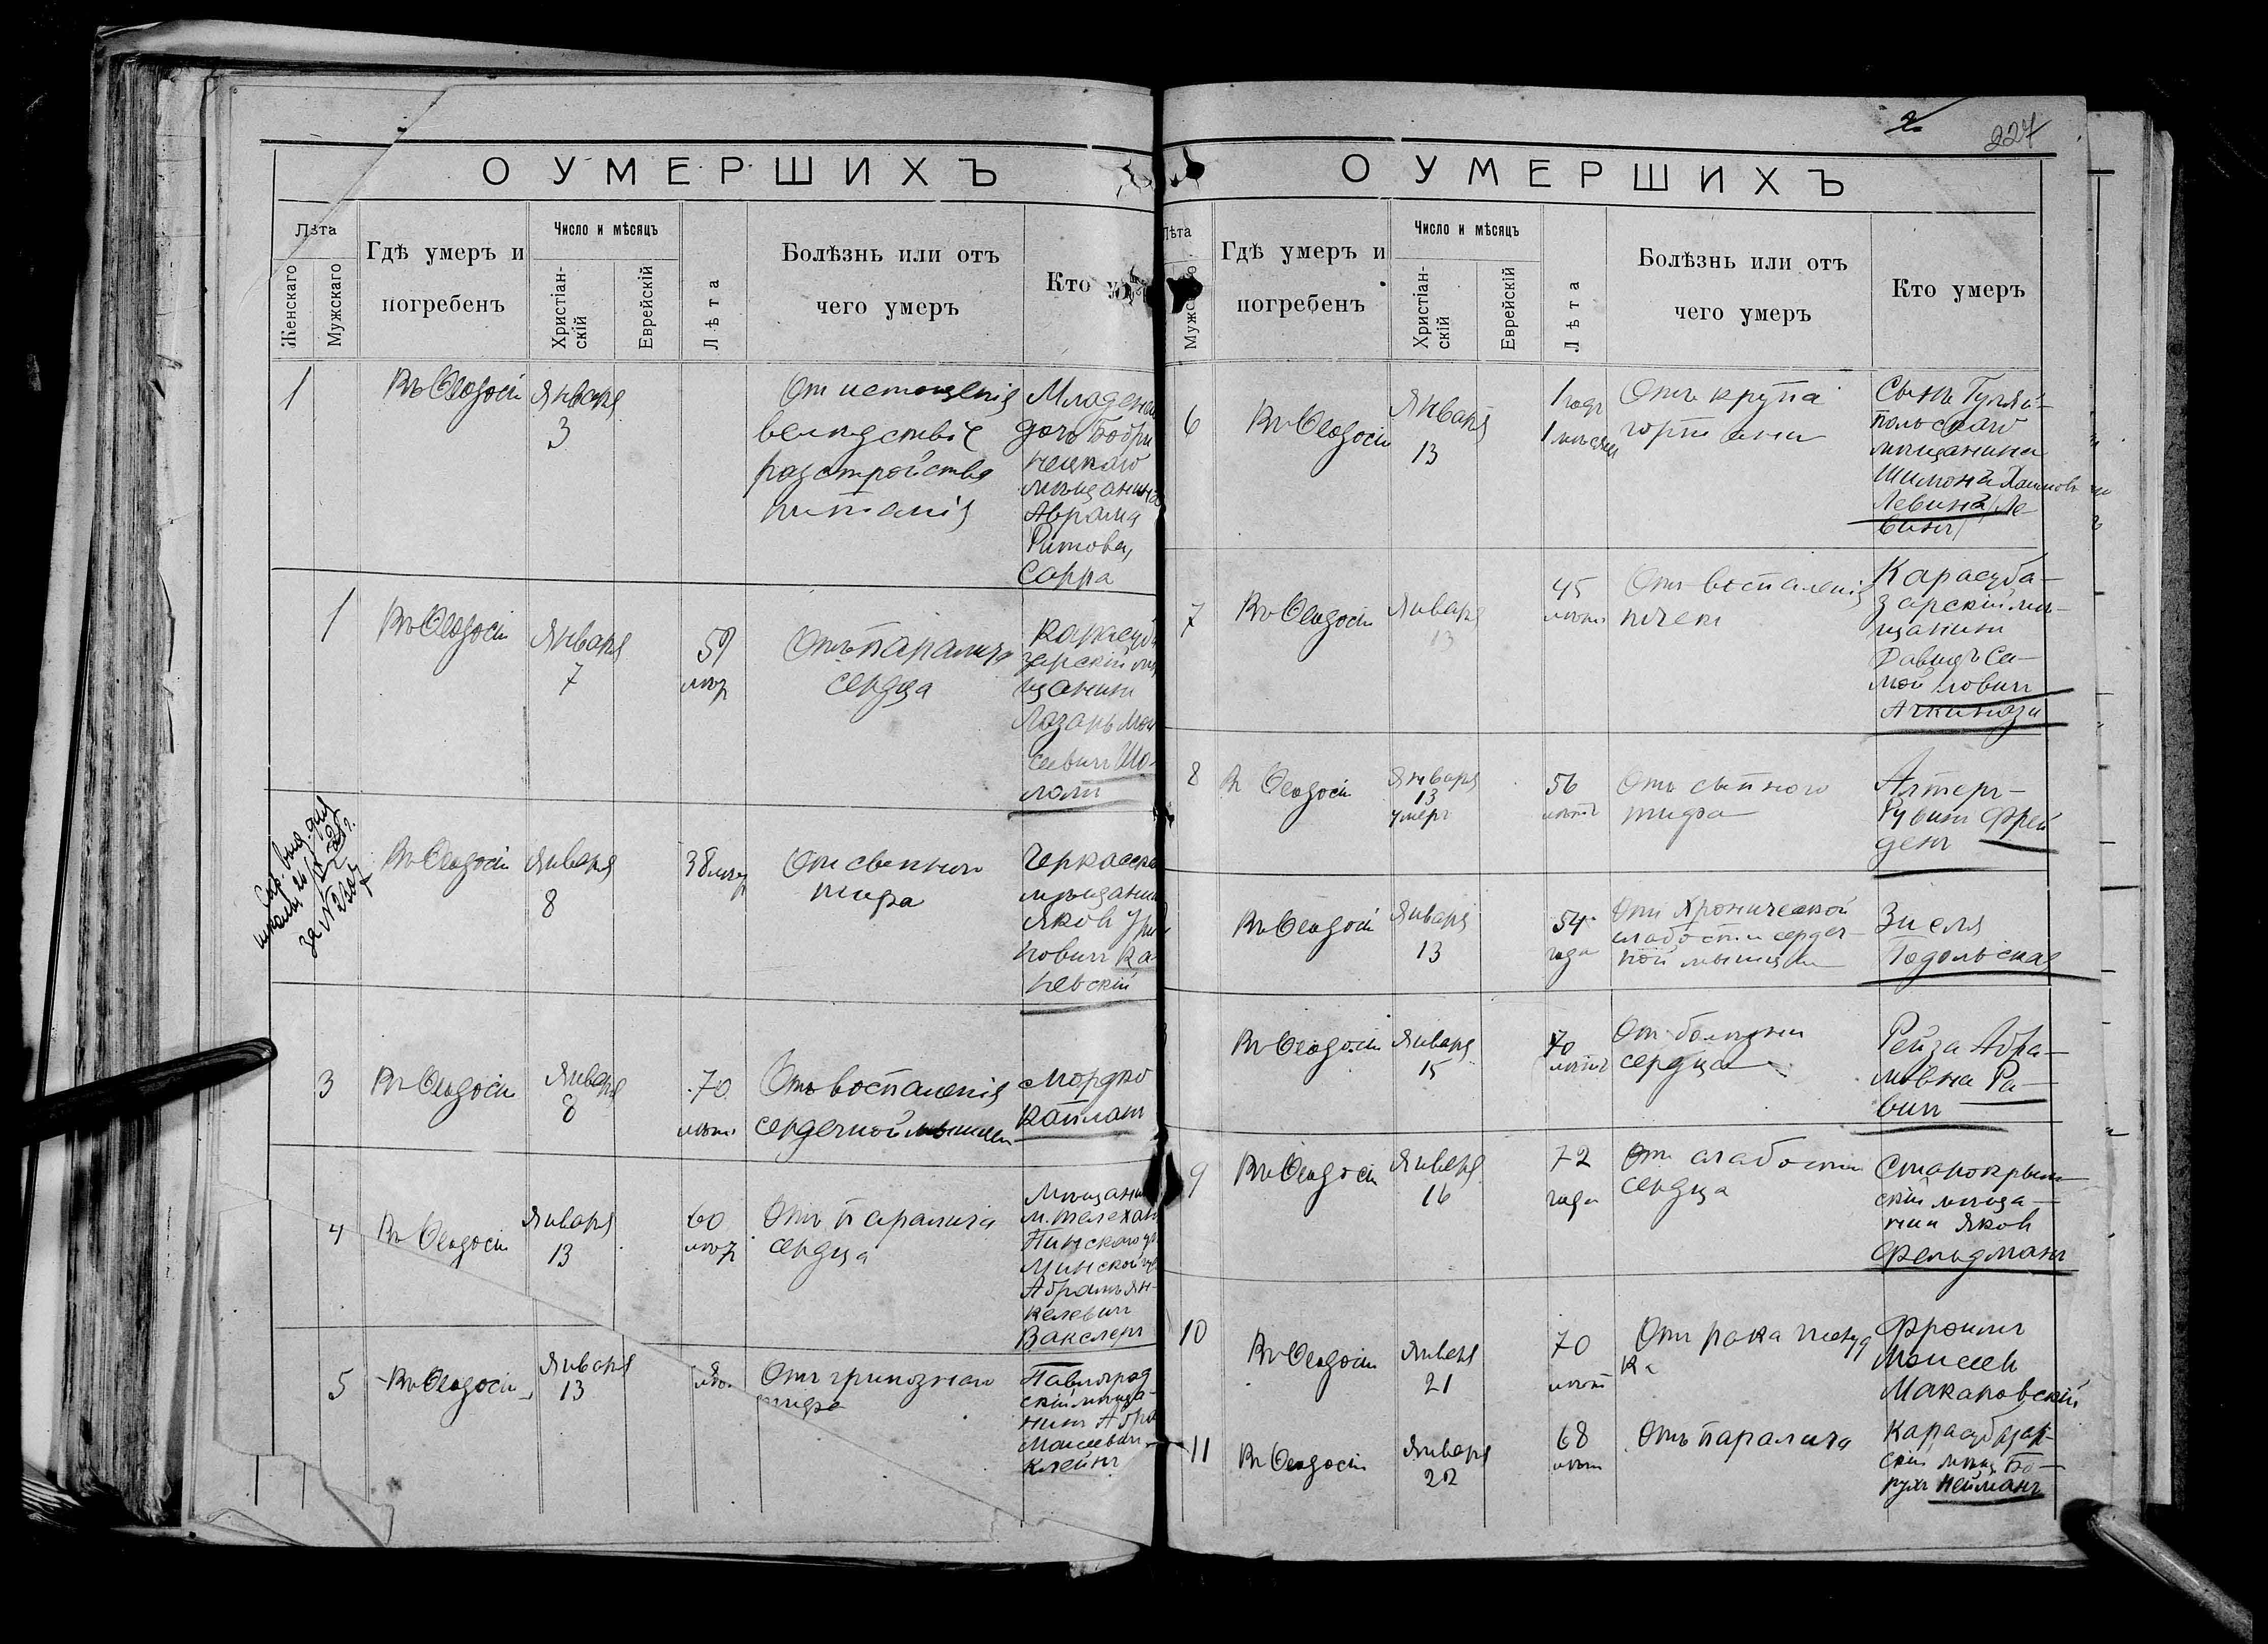 О УМЕРШИХЪ
Лѣта
Женскаго
Мужскаго
Гдѣ умеръ и
погребенъ
Число и мѣсяцъ
Христіан-
скій
Еврейскій
Лѣта
Болѣзнь или отъ
чего умеръ
Кто
1
Въ Ѳеодосіи
Января
3
От истощенія
вслѣдствіе
разстройства
питанія
дочь Бобри
нецкаго
мѣщанина
Аврама
Ритова,
Сарра
1
Въ Ѳеодосіи
Января
7
59
лѣт
Отъ паралича
сердца
Карасуба
зарскій мѣ
щанинъ
Лазарь Мои
сеевичъ Шо-
ломъ
за №
Въ Ѳеодосіи
Января
8
38 лѣт
От сыпного
тифа
мѣщанин
Яковъ
Ка-
невскій
3
Въ Ѳеодосіи
Января
8
70
лѣтъ
Отъ воспаленія
сердечной мышцы
Мордко
Капланъ
4
Въ Ѳеодосіи
Января
13
60
лѣт
Отъ паралича
сердца
Мѣщанин
м. Телехан
Пинскаго у
Минской гу
Абрамъ Ян-
келевичъ
Вакслеръ
5
Въ Ѳеодосіи
Января
13
Отъ гриппознаго
тифа
Павлоград
скій мѣща-
нинъ Абра
Моисеевич
Клейнъ
2
227
О УМЕРШИХЪ
Лѣта
Гдѣ умеръ и
погребенъ
Число и мѣсяцъ
Христіан-
скій
Еврейскій
Лѣта
Болѣзнь или отъ
чего умеръ
Кто умеръ
6
Въ Ѳеодосіи
Января
13
1 годъ
1 мѣсяц
Отъ крупа
гортани
Сынъ Гуляй-
польскаго
мѣщанина
Шимона Хаимов
Левина /Ле-
винъ/
7
Въ Ѳеодосіи
Января
13
45
лѣтъ
Отъ воспаленія
почек
Карасуба-
зарскій мѣ-
щанинъ
Давидъ Са-
мойловичъ
Ачкинази
8
Въ Ѳеодосіи
Января
13
умеръ
56
лѣтъ
Отъ сыпного
тифа
Алтеръ-
Рувинъ Фрей
денъ
Въ Ѳеодосіи
Января
13
54
года
Отъ хронической
слабости сердеч-
ной мышцы
Зисля
Подольская
Въ Ѳеодосіи
Января
15
70
лѣтъ
От болѣзни
сердца
Рейза Абра-
мовна Ра-
вич
9
Въ Ѳеодосіи
Января
16
72
года
От слабости
сердца
Старокрым-
скій мѣща-
нин Яковъ
Фельдманъ
10
Въ Ѳеодосіи
Января
21
70
лѣтъ
Отъ рака желуд
ка
Фроимъ
Моисеев
Макаровскій
11
Въ Ѳеодосіи
Января
22
68
лѣтъ
Отъ паралича
Карасубазар-
скій мѣщ. Бо-
рухъ Нейманъ